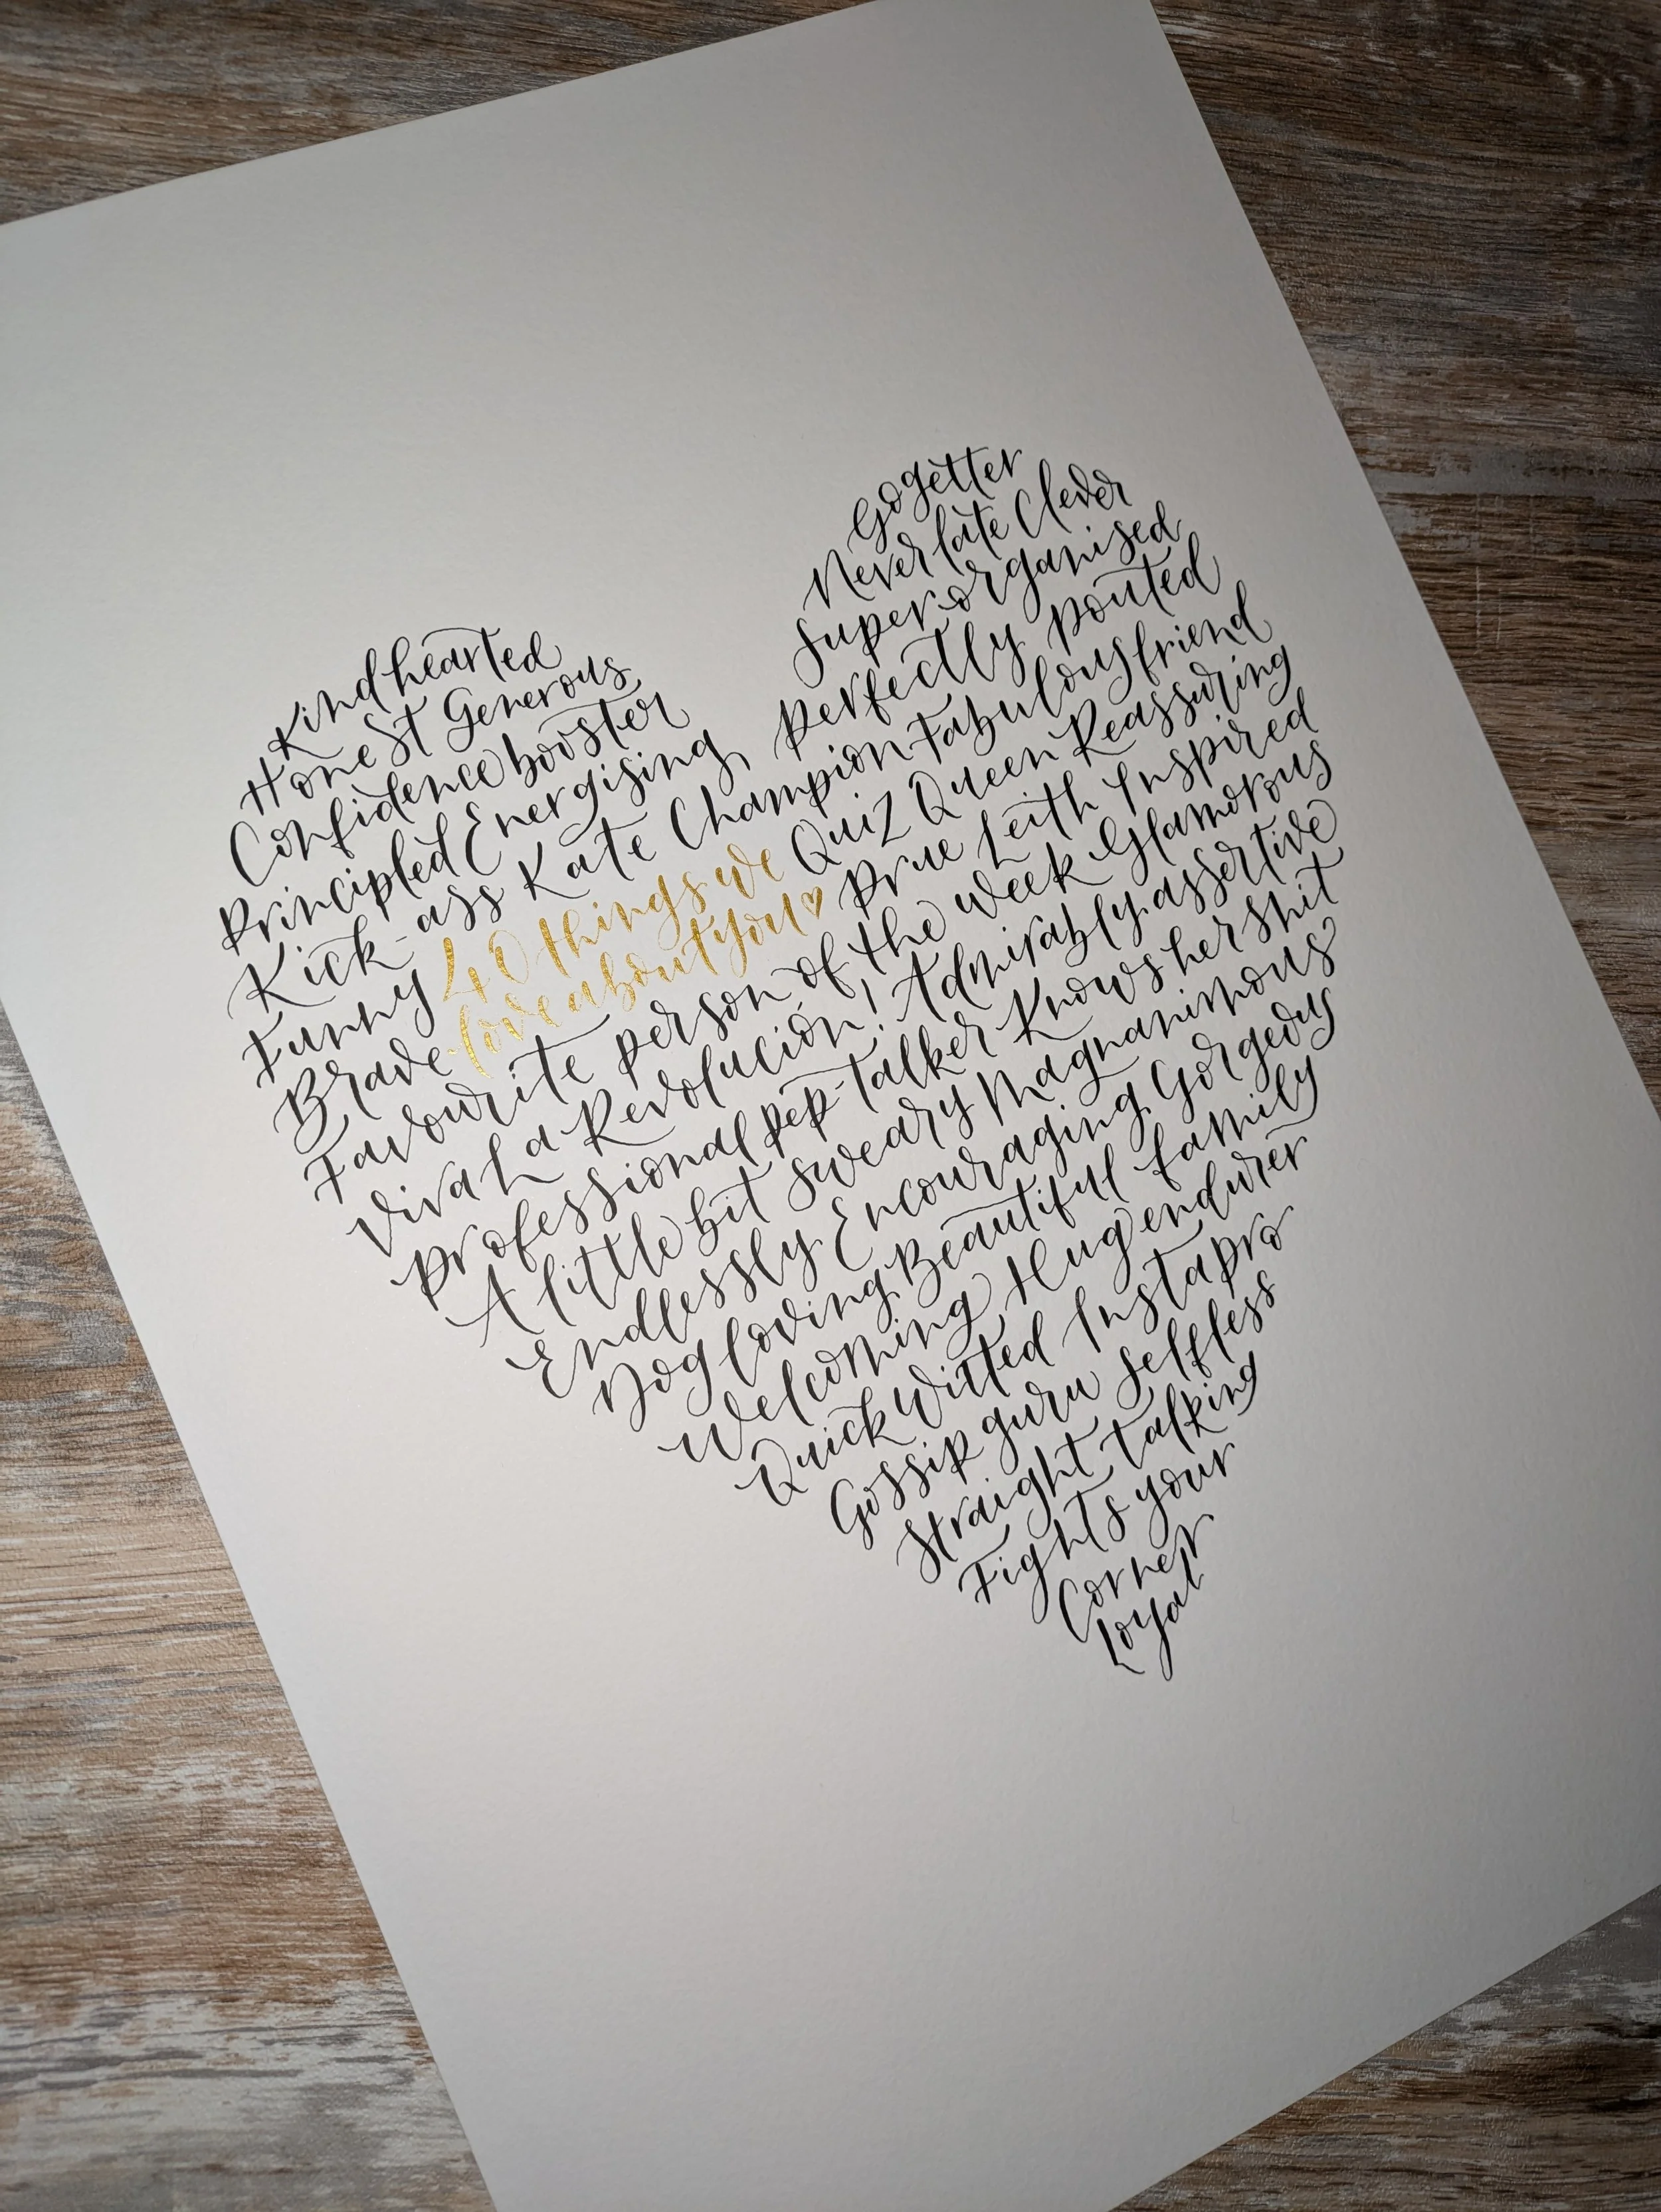 Kindhearted
Honest Generous
Confidence booster
Principled Energising
Gogetter
Never late Clever
Super-organised
perfectly pouted
Kick-ass Kate Champion Fabulous friend
Funny 40 things we Quiz Queen Reassuring
Brave love about you♡ Prue Leith Inspired
Favourite person of the week Glamorous
Viva La Revolución! Admirably assertive
Professional pep-talker Knows her shit
A little bit sweary Magnanimous
Endlessly Encouraging Gorgeous
Dog loving Beautiful family
Welcoming Hug endurer
Quick Witted Instapro
Gossip guru Selfless
Straight talking
Fights your
Corner
Loyal